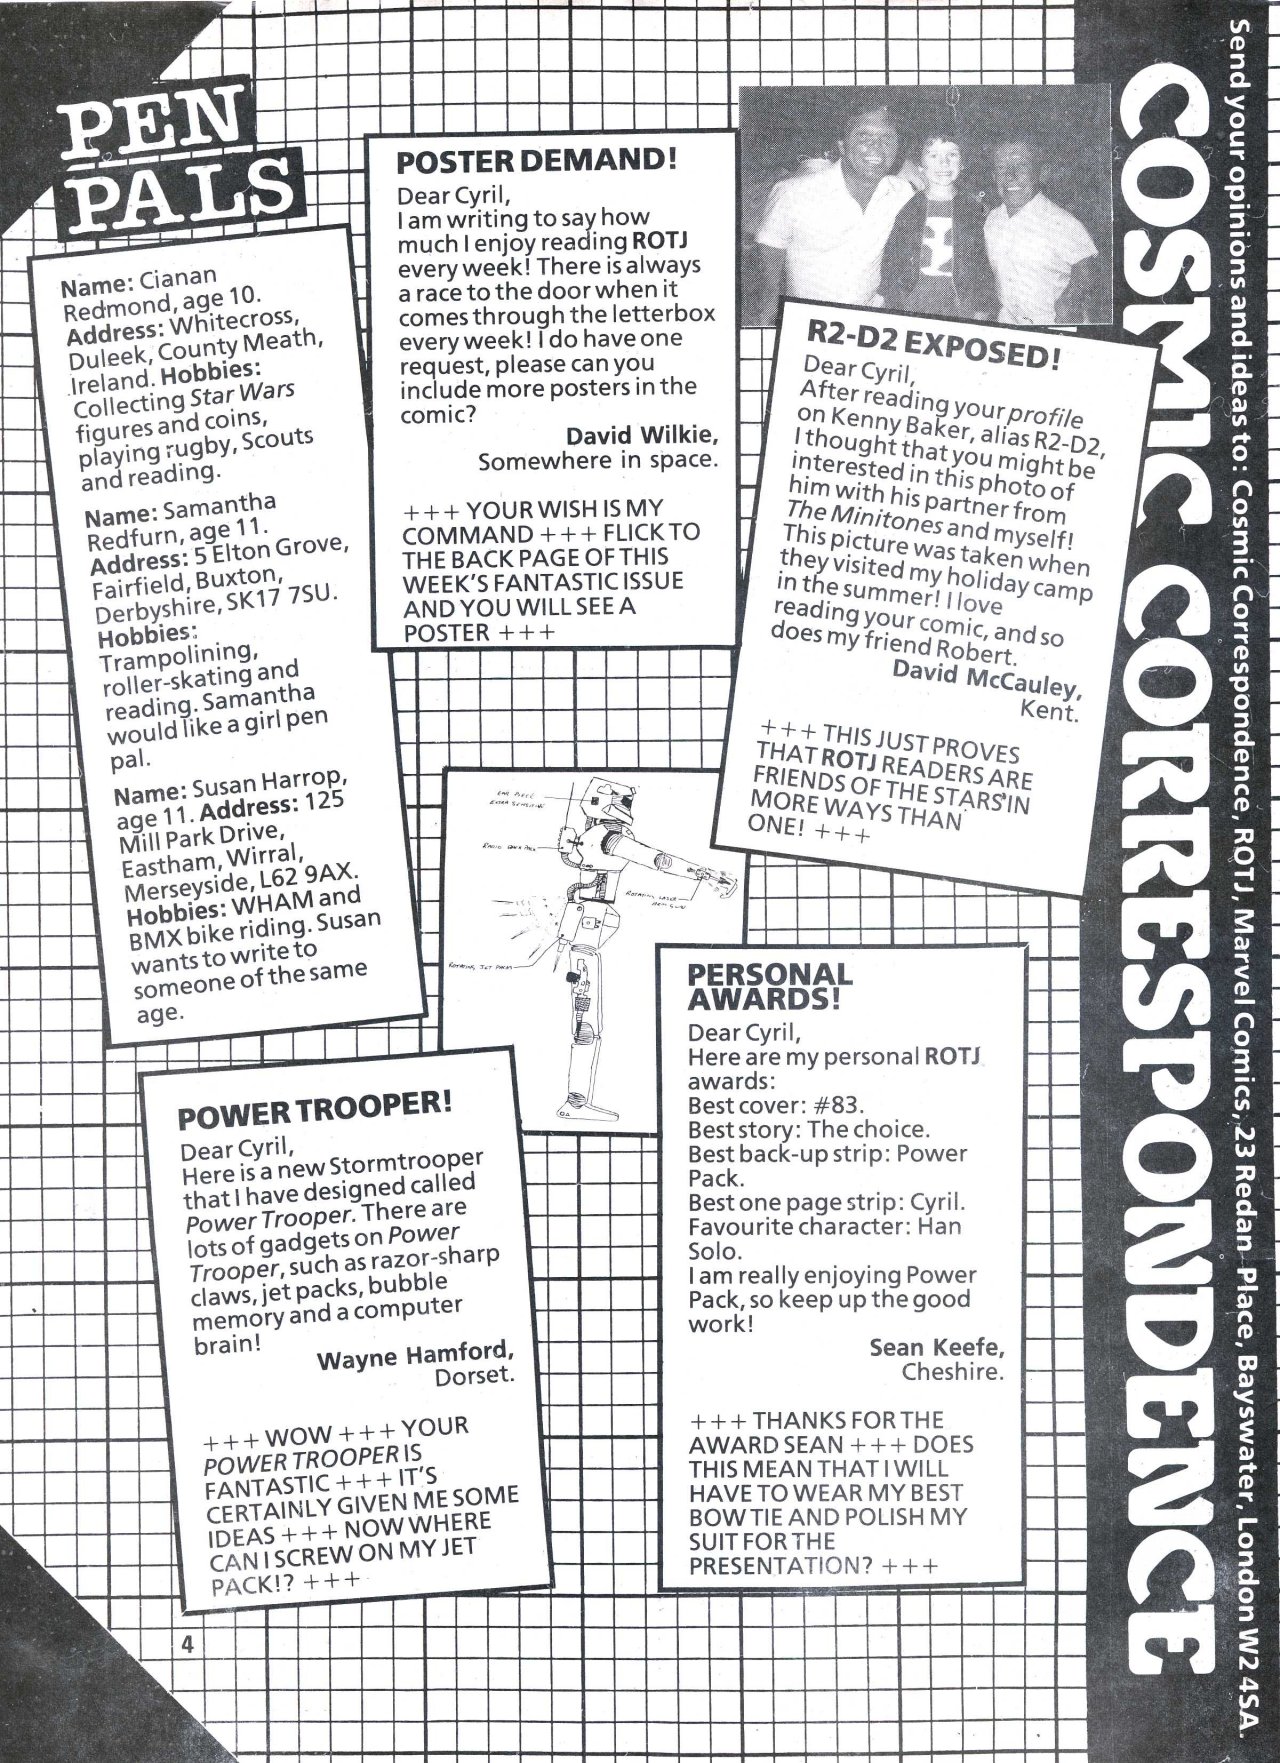 PEN
PALS
Name: Cianan
Redmond, age 10.
Address: Whitecross,
Duleek, County Meath,
Ireland. Hobbies:
Collecting Star Wars
figures and coins,
playing rugby, Scouts
and reading.
Name: Samantha
Redfurn, age 11.
Address: 5 Elton Grove,
Fairfield, Buxton,
Derbyshire, SK17 7SU.
Hobbies:
Trampolining,
roller-skating and
reading. Samantha
would like a girl pen
pal.
Name: Susan Harrop,
age 11. Address: 125
Mill Park Drive,
Eastham, Wirral,
Merseyside, L62 9AX.
Hobbies: WHAM and
BMX bike riding. Susan
wants to write to
someone of the same
age.
POSTER DEMAND!
Dear Cyril,
I am writing to say how
much I enjoy reading ROTJ
every week! There is always
a race to the door when it
comes through the letterbox
every week! I do have one
request, please can you
include more posters in the
comic?
David Wilkie,
Somewhere in space.
+++ YOUR WISH IS MY
COMMAND +++ FLICK TO
THE BACK PAGE OF THIS
WEEK'S FANTASTIC ISSUE
AND YOU WILL SEE A
POSTER +++
R2-D2 EXPOSED!
Dear Cyril,
After reading your profile
on Kenny Baker, alias R2-D2,
I thought that you might be
interested in this photo of
him with his partner from
The Minitones and myself!
This picture was taken when
they visited my holiday camp
in the summer! I love
reading your comic, and so
does my friend Robert.
David McCauley,
Kent.
+++ THIS JUST PROVES
THAT ROTJ READERS ARE
FRIENDS OF THE STARS IN
MORE WAYS THAN
ONE! +++
EAR PIECE
EXTRA SENSITIVE
RADIO BACK PACK
ROTATING LASER
ROTATING JET PACKS
POWER TROOPER!
Dear Cyril,
Here is a new Stormtrooper
that I have designed called
Power Trooper. There are
lots of gadgets on Power
Trooper, such as razor-sharp
claws, jet packs, bubble
memory and a computer
brain!
Wayne Hamford,
Dorset.
+++ WOW +++ YOUR
POWER TROOPER IS
FANTASTIC +++ IT'S
CERTAINLY GIVEN ME SOME
IDEAS +++ NOW WHERE
CAN I SCREW ON MY JET
PACK!? +++
PERSONAL
AWARDS!
Dear Cyril,
Here are my personal ROTJ
awards:
Best cover: #83.
Best story: The choice.
Best back-up strip: Power
Pack.
Best one page strip: Cyril.
Favourite character: Han
Solo.
I am really enjoying Power
Pack, so keep up the good
work!
Sean Keefe,
Cheshire.
+++ THANKS FOR THE
AWARD SEAN +++ DOES
THIS MEAN THAT I WILL
HAVE TO WEAR MY BEST
BOW TIE AND POLISH MY
SUIT FOR THE
PRESENTATION? +++
4
COSMIC CORRESPONDENCE
Send your opinions and ideas to: Cosmic Correspondence, ROTJ, Marvel Comics, 23 Redan Place, Bayswater, London W2 4SA.